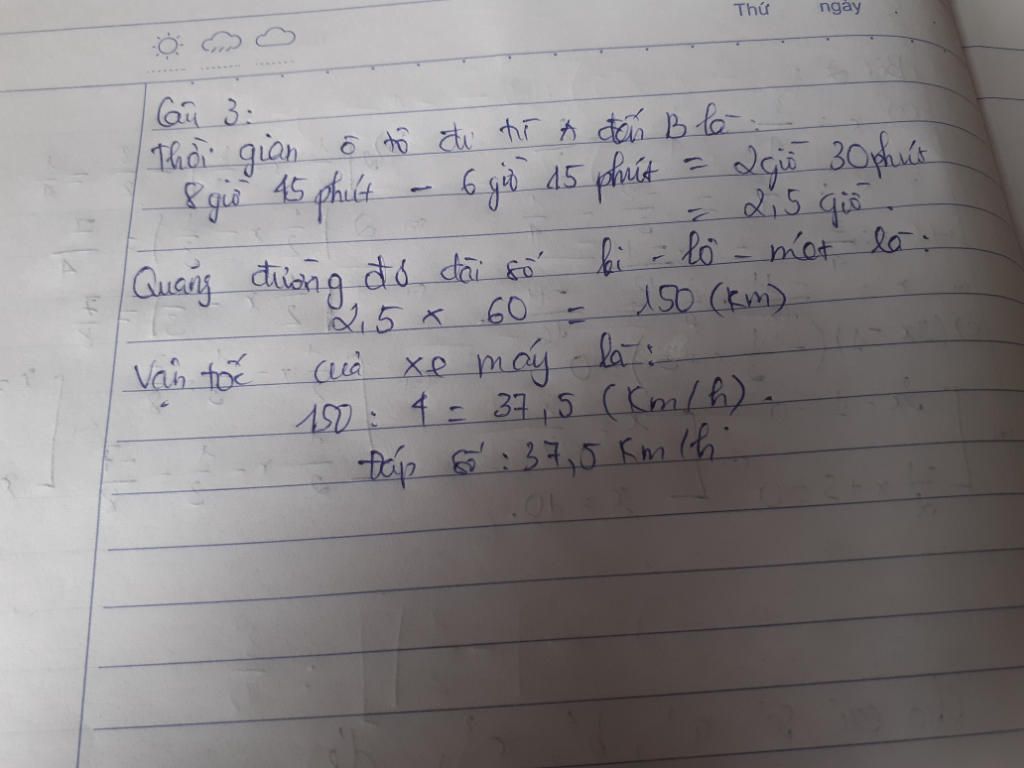 Thứ ngày
Câu 3:
Thời gian ô tô đi từ A đến B là:
8 giờ 45 phút - 6 giờ 15 phút = 2 giờ 30 phút
= 2,5 giờ.
Quãng đường đó dài số ki - lô - mét là:
2,5 x 60 = 150 (km)
Vận tốc của xe máy là:
150 : 4 = 37,5 (Km/h).
Đáp số : 37,5 Km/h